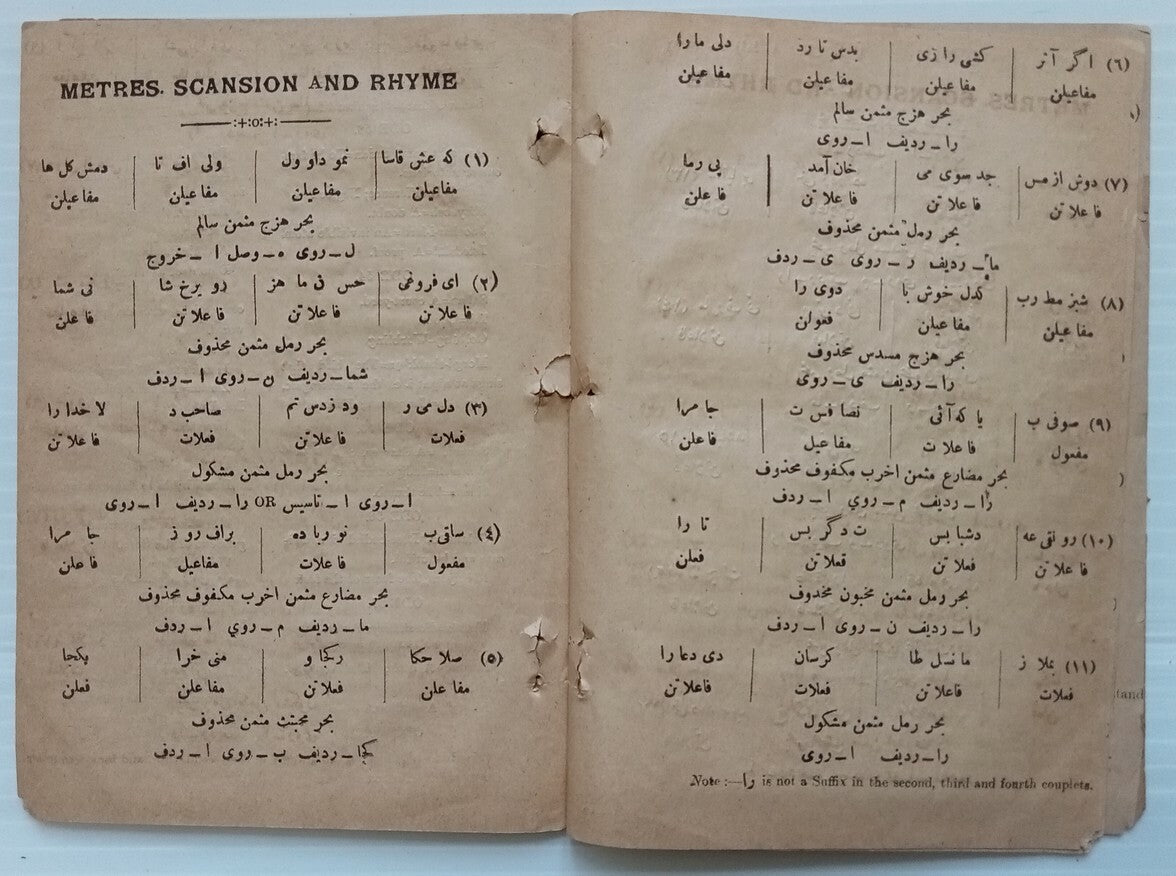 METRES. SCANSION AND RHYME
(۱) که عش قاسا | نمو داو ول | ولی اف تا | دمش کل ها
مفاعیلن | مفاعیلن | مفاعیلن | مفاعیلن
بحر هزج مثمن سالم
ل ــ روی ه ــ وصل ا ــ خروج
(۲) ای فروغی | حس ن ما هز | رو یرخ شا | نی شما
فاعلاتن | فاعلاتن | فاعلاتن | فاعلن
بحر رمل مثمن محذوف
شما ــ ردیف ن ــ روی ا ــ ردف
(۳) دل می ر | ود زدس تم | صاحب د | لا خدا را
فعلات | فاعلاتن | فعلات | فاعلاتن
بحر رمل مثمن مشکول
ا ــ روی ا ــ تاسیس OR را ــ ردیف ا ــ روی
(٤) ساقی ب | نو ربا ده | براف روز | جا مرا
مفعول | فاعلات | مفاعیل | فاعلن
بحر مضارع مثمن اخرب مکفوف محذوف
ما ــ ردیف م ــ روي ا ــ ردف
(۵) صلا حکا | رکجا و | منی خرا | پکجا
مفاعلن | فعلاتن | مفاعلن | فعلن
بحر مجتث مثمن محذوف
کجا ــ ردیف ب ــ روی ا ــ ردف
(٦) اگر آتر | کشی را زی | بدس تا رد | دلی ما را
مفاعیلن | مفاعیلن | مفاعیلن | مفاعیلن
بحر هزج مثمن سالم
را ــ ردیف ا ــ روی
(۷) دوش از مس | جد سوی می | خان آمد | پی رما
فاعلاتن | فاعلاتن | فاعلاتن | فاعلن
بحر رمل مثمن محذوف
ما ــ ردیف ر ــ روی ی ــ ردف
(۸) شبز مط رب | کدل خوش با | دوی را
مفاعیلن | مفاعیلن | فعولن
بحر هزج مسدس محذوف
را ــ ردیف ی ــ روی
(۹) صوفی ب | یا که آئی | نصا فس ت | جا مرا
مفعول | فاعلات | مفاعیل | فاعلن
بحر مضارع مثمن اخرب مکفوف محذوف
را ــ ردیف م ــ روي ا ــ ردف
(۱۰) رو نقی عه | دشبا بس | ت دگر بس | تا را
فاعلاتن | فعلاتن | فعلاتن | فعلن
بحر رمل مثمن مخبون مخدوف
را ــ ردیف ن ــ روی ا ــ ردف
(۱۱) بملا ز | مانسل طا | کرسان | دی دعا را
فعلات | فاعلاتن | فعلات | فاعلاتن
بحر رمل مثمن مشکول
را ــ ردیف ا ــ روی
Note :—را is not a Suffix in the second, third and fourth couplets.